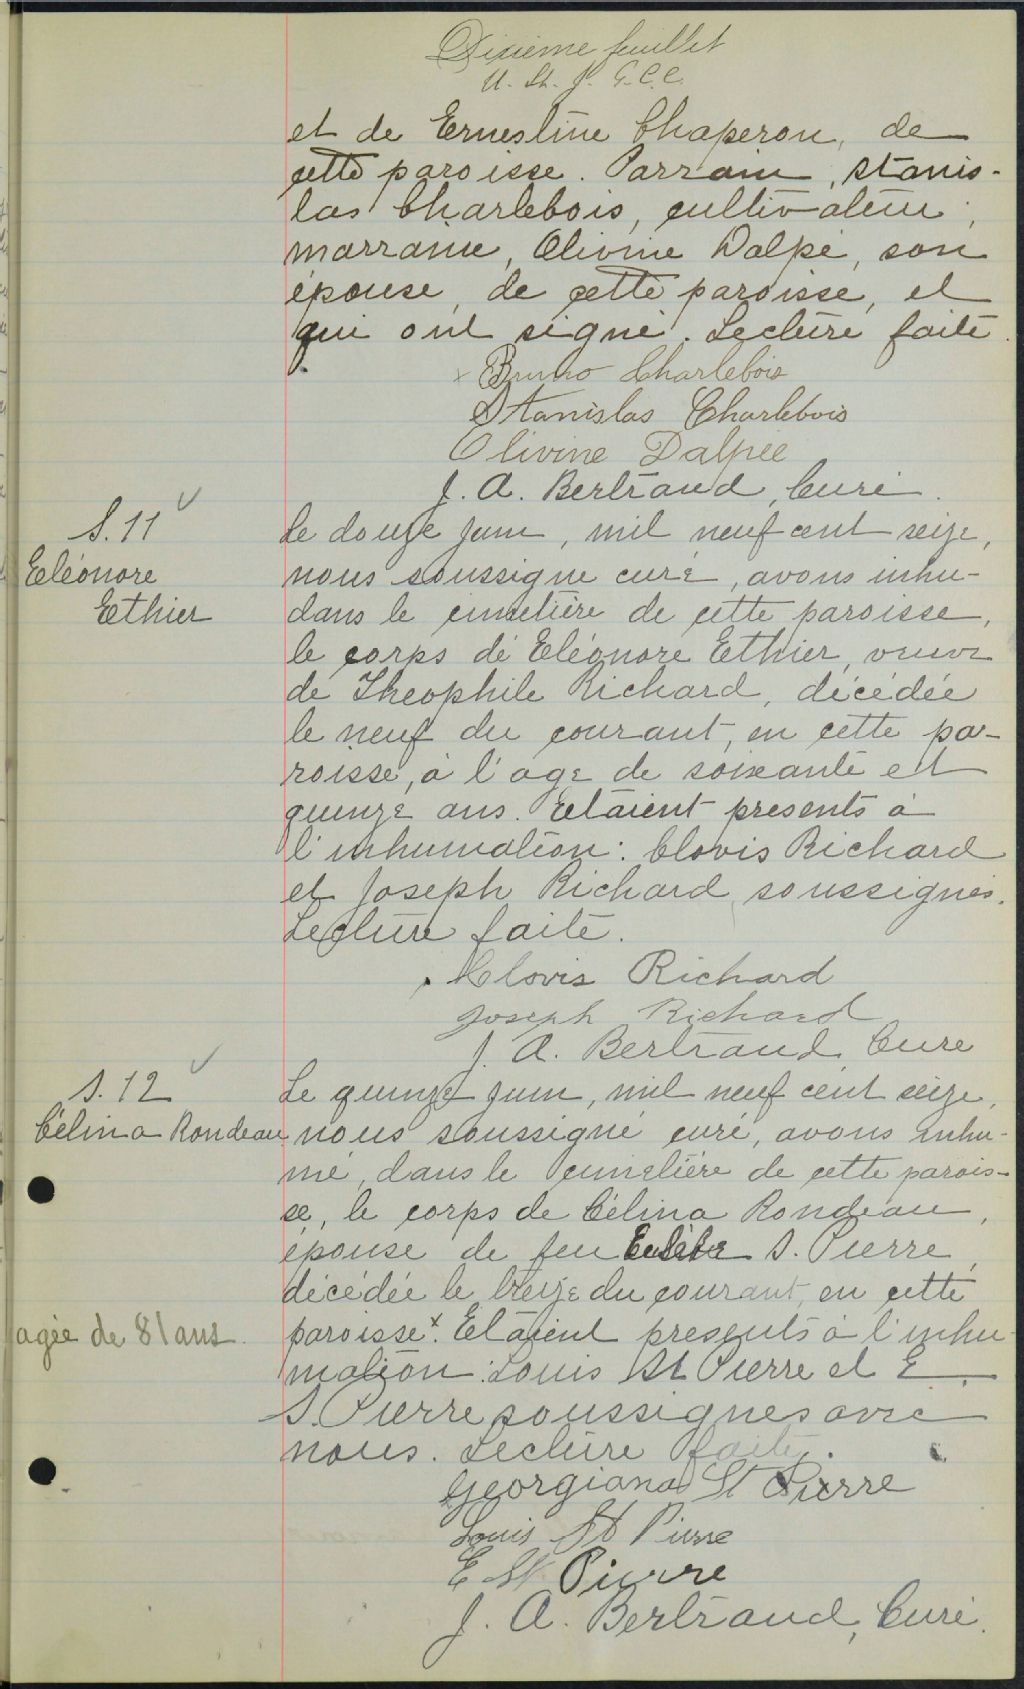 Dixième feuillet
U. St. J. G.C.C.
et de Ernestine Chaperon, de
cette paroisse. Parrain, Stanis-
las Charlebois, cultivateur;
marraine, Olivine Dalpé, son
épouse, de cette paroisse, et
qui ont signé. Lecture faite.
Bruno Charlebois
Stanislas Charlebois
Olivine Dalpée
J. A. Bertrand, Curé.
S. 11
Eléonore
Ethier
Le douze juin, mil neuf cent seize,
nous soussigné curé, avons inhu-
dans le cimetière de cette paroisse,
le corps de Eléonore Ethier, veuve
de Théophile Richard, décédée
le neuf du courant, en cette pa-
roisse, à l'age de soixante et
quinze ans. Etaient presents à
l'inhumation: Clovis Richard
et Joseph Richard soussignés.
Lecture faite.
Clovis Richard
Joseph Richard
J. A. Bertrand, Curé
S. 12
Célina Rondeau
Le quinze juin, mil neuf cent seize,
nous soussigné curé, avons inhu-
mé, dans le cimetière de cette parois-
se, le corps de Célina Rondeau,
épouse de feu Eusèbe S. Pierre,
décédée le treize du courant, en cette
agée de 81 ans.
paroisse x. Etaient presents à l'inhu-
mation: Louis St Pierre et E.
S. Pierre soussignés avec
nous. Lecture faite.
Georgiana St Pierre
Louis St Pierre
E St Pierre
J. A. Bertrand, Curé.